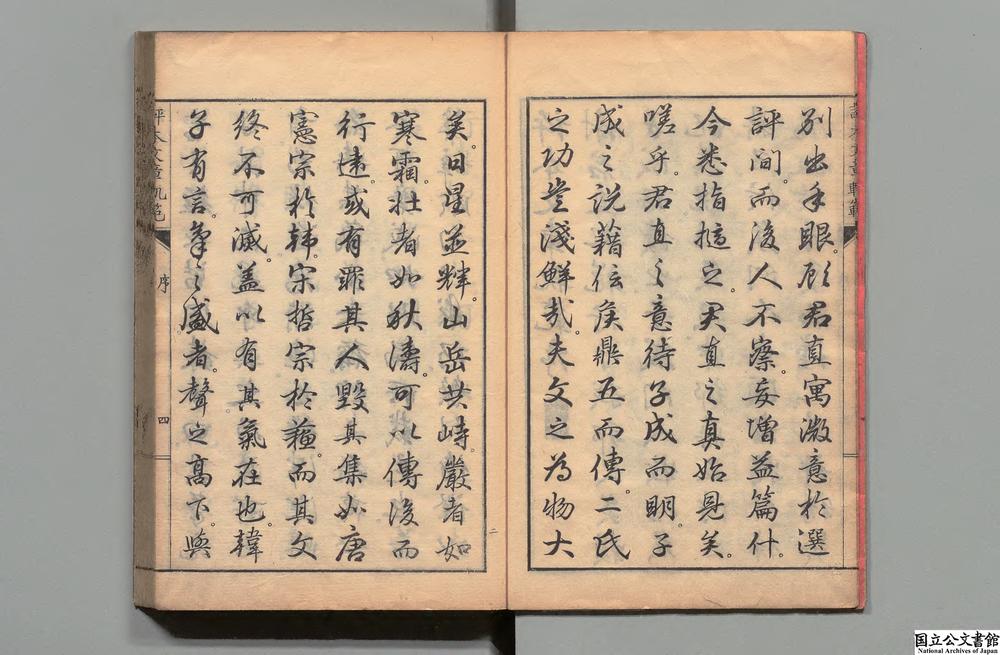 別出手眼。顧君直寓微意於選
評間。而後人不察。妄增益篇什。
今悉指擿之。君直之真始見矣。
嗟乎。君直之意待子成而明。子
成之說藉伝矦鼎五而傳。二氏
之功豈淺鮮哉。夫文之為物大
矣。日星並輝。山岳共峙。嚴者如
寒霜。壮者如秋濤。可以傳後而
行遠。或有罪其人毀其集。如唐
憲宗於韩。宋哲宗於蘓。而其文
終不可滅。盖以有其氣在也。韓
子有言。氣之盛者。聲之高下。與
序
四
国立公文書館
National Archives of Japan